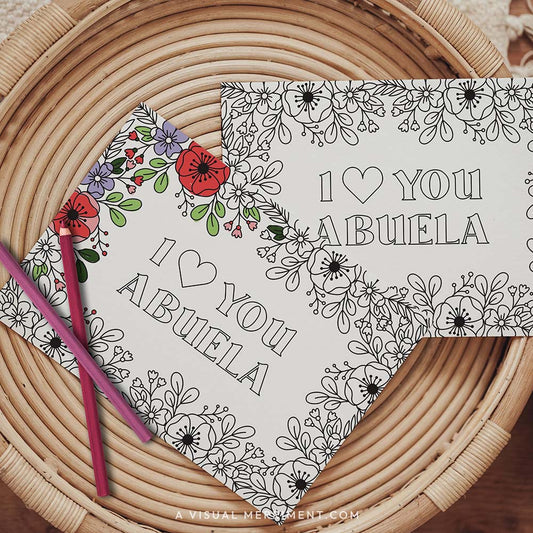 I ♡ YOU
ABUELA
I ♡ YOU
ABUELA
A VISUAL MERRIMENT.COM